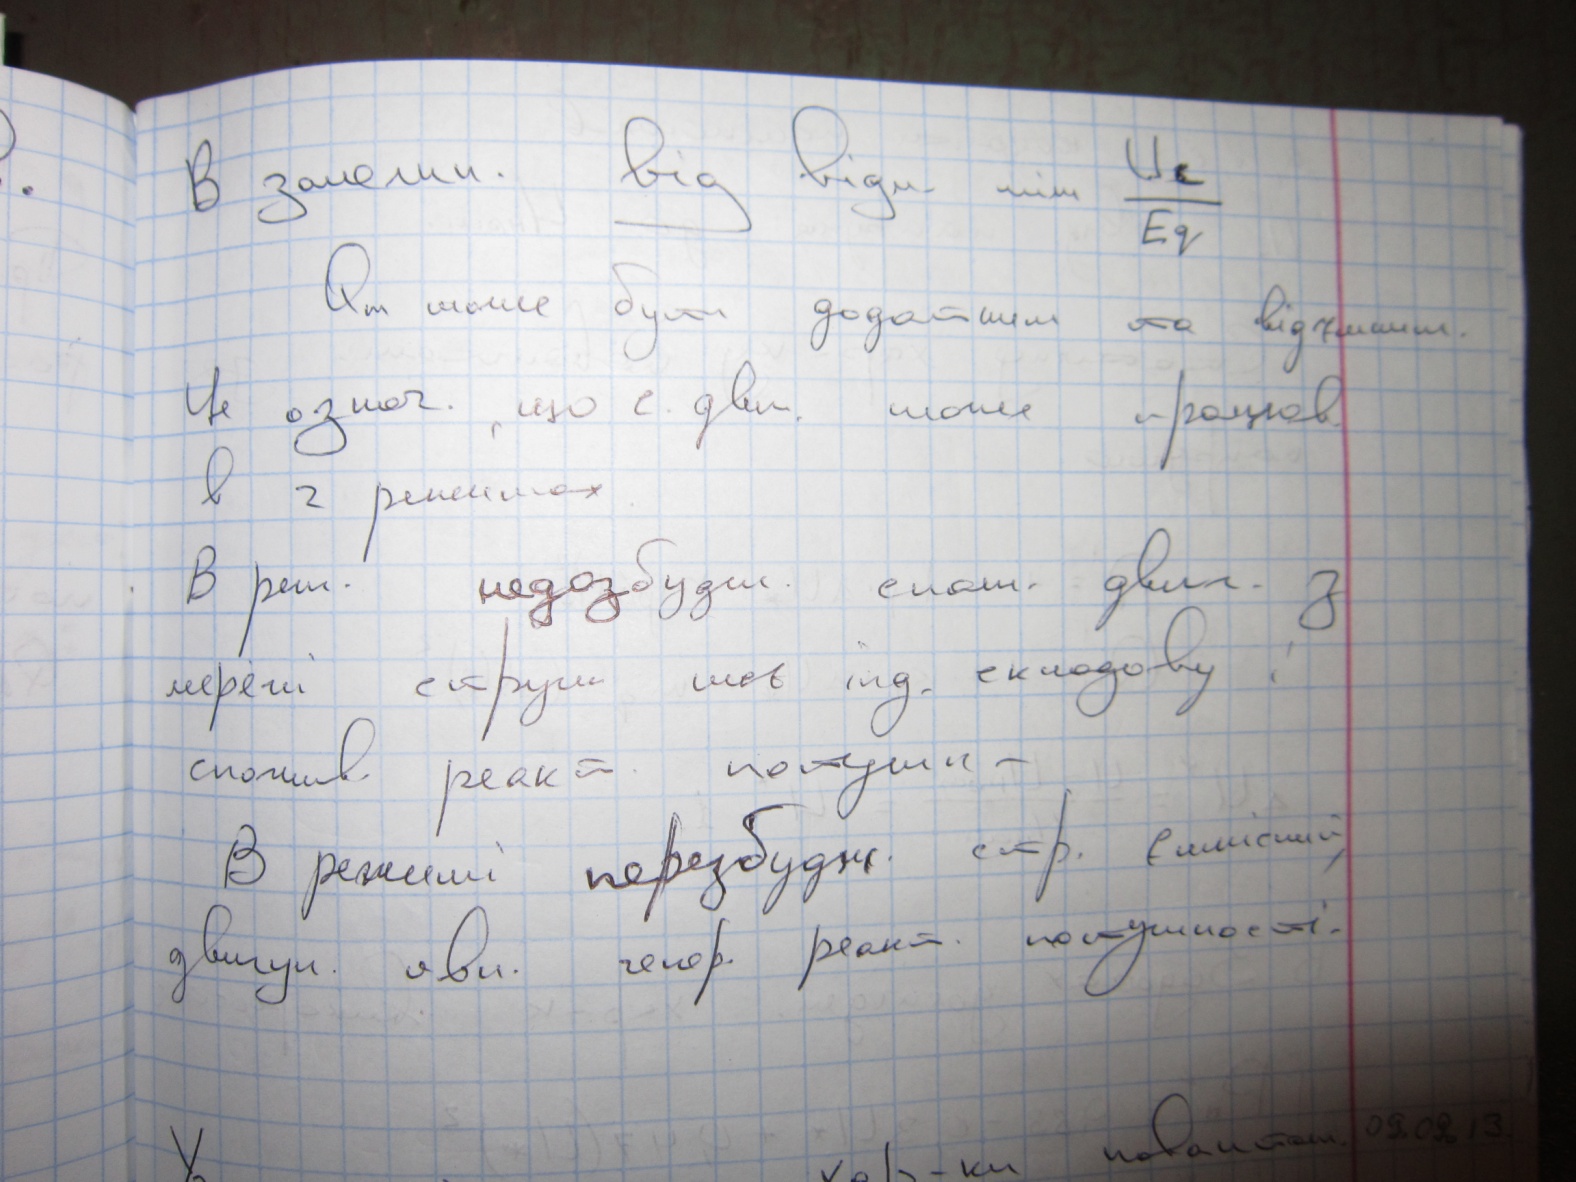 В залежн. від відн. між Uc/Eq
Qm може бути додатнім та від'ємним.
Це означ., що с. двиг. може працюв.
в 2 режимах
В реж. недозбудж. спож. двиг. з
мережі струм має інд. складову і
спожив. реакт. потужн-
В режимі перезбудж. стр. ємнісний,
двигун. явл. генер. реакт. потужності.
хар-ки навантаж. 09.09.13